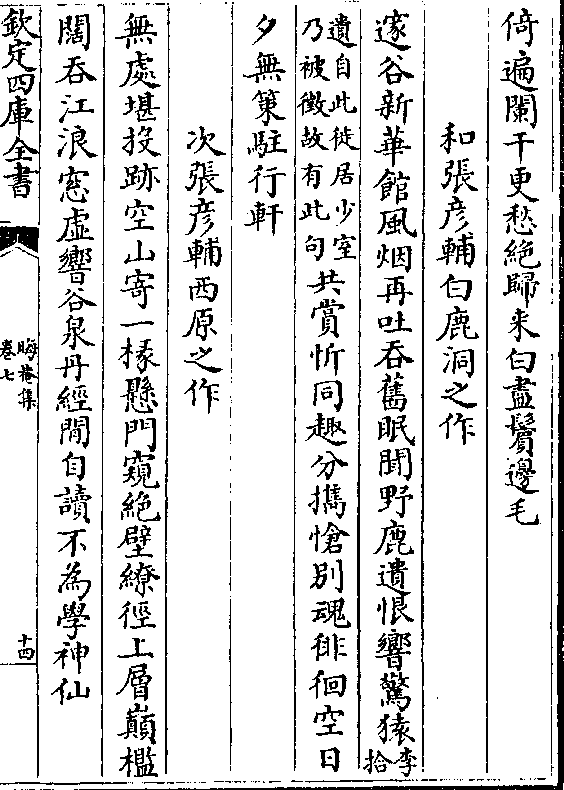 倚遍闌干更愁絶歸来白盡鬢邊毛
和張彦輔白鹿洞之作
邃谷新華館風烟再吐吞舊眠聞野鹿遺恨響驚猿李拾
遺自此徙居少室乃被徵故有此句共賞忻同趣分攜愴别魂徘徊空日
夕無策駐行軒
次張彦輔西原之作
無處堪投跡空山寄一椽懸門窺絶壁繚徑上層巔檻
闊吞江浪窓虚響谷泉丹經閒自讀不為學神仙
欽定四庫全書
晦菴集
卷七
十四